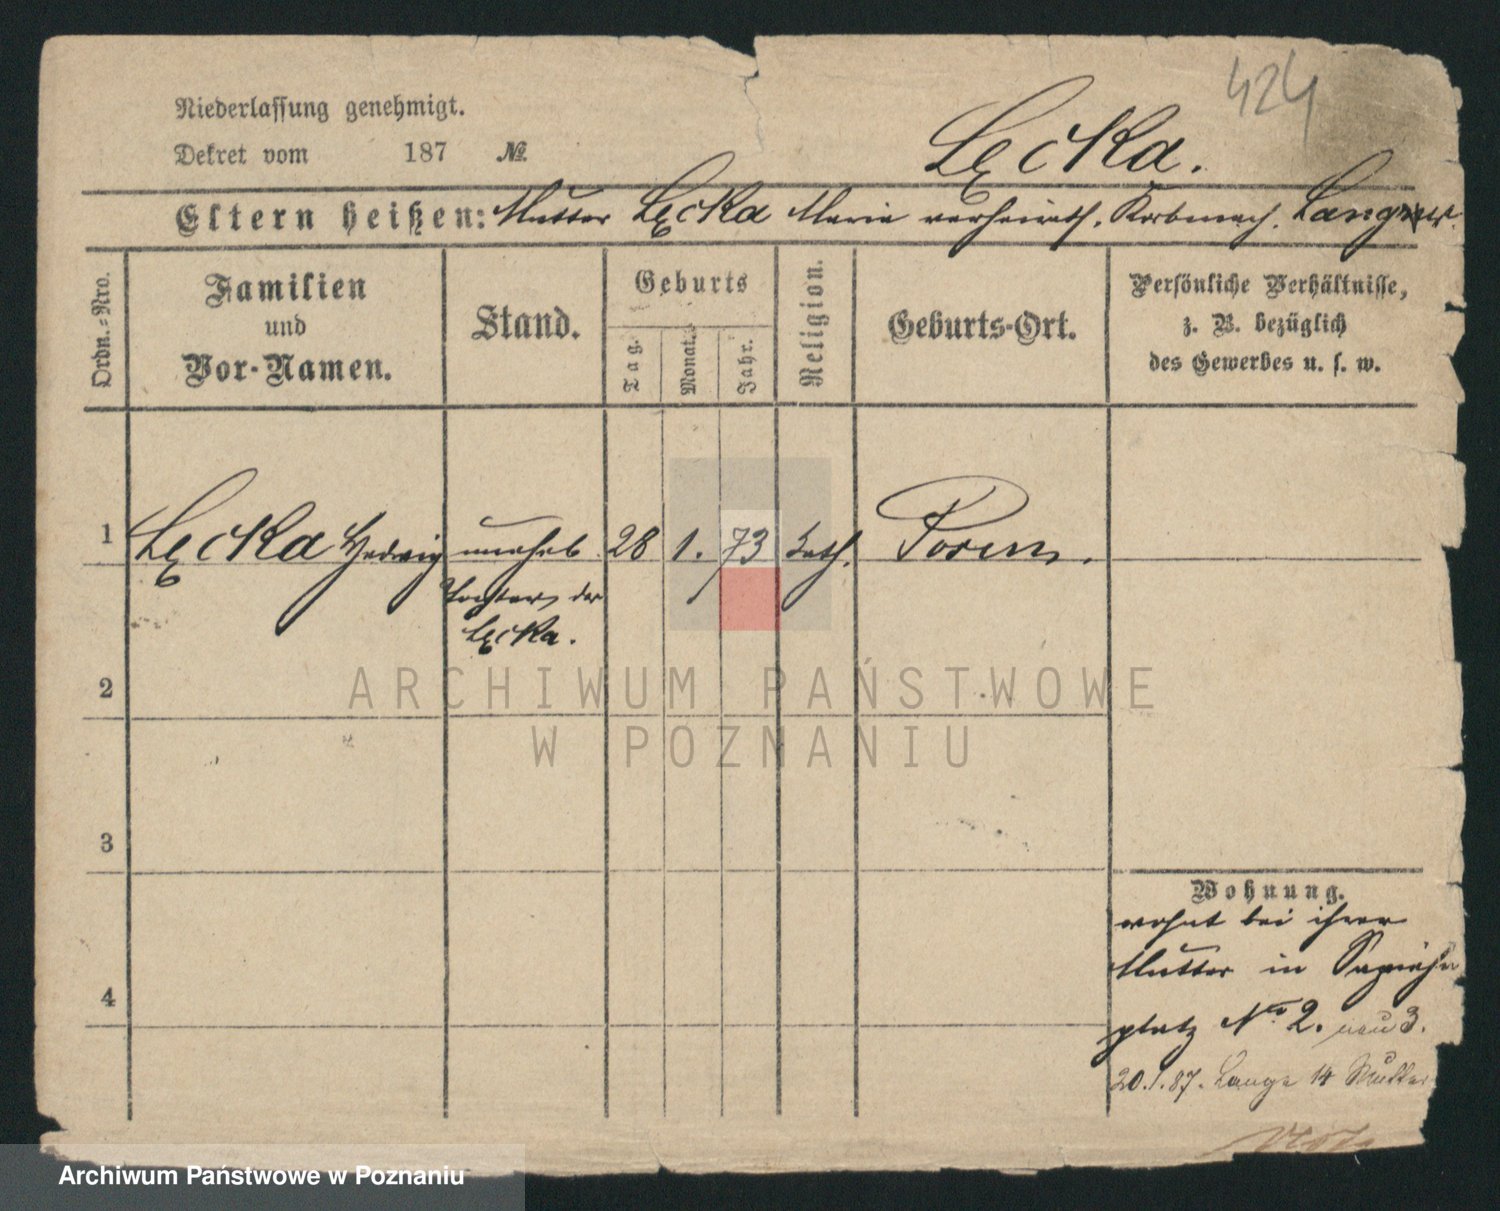 424
Niederlassung genehmigt.
Dekret vom 187 №
Lęcka.
Eltern heißen: Mutter Lęcka Marie verheirath. Korbmach. Langner.
Ordn.-Nro.
Familien
und
Vor-Namen.
Stand.
Geburts
Tag.
Monat.
Jahr.
Religion.
Geburts-Ort.
Persönliche Verhältnisse,
z. B. bezüglich
des Gewerbes u. s. w.
1 Lęcka Hedwig unehel 28 1. 73 kath. Posen.
Tochter der
Lęcka.
2
3
4
Wohnung.
wohnt bei ihrer
Mutter in Sapieha
platz No. 2. neu 3.
20.1.87. Lange 14 Mutter
ARCHIWUM PAŃSTWOWE
W POZNANIU
Archiwum Państwowe w Poznaniu